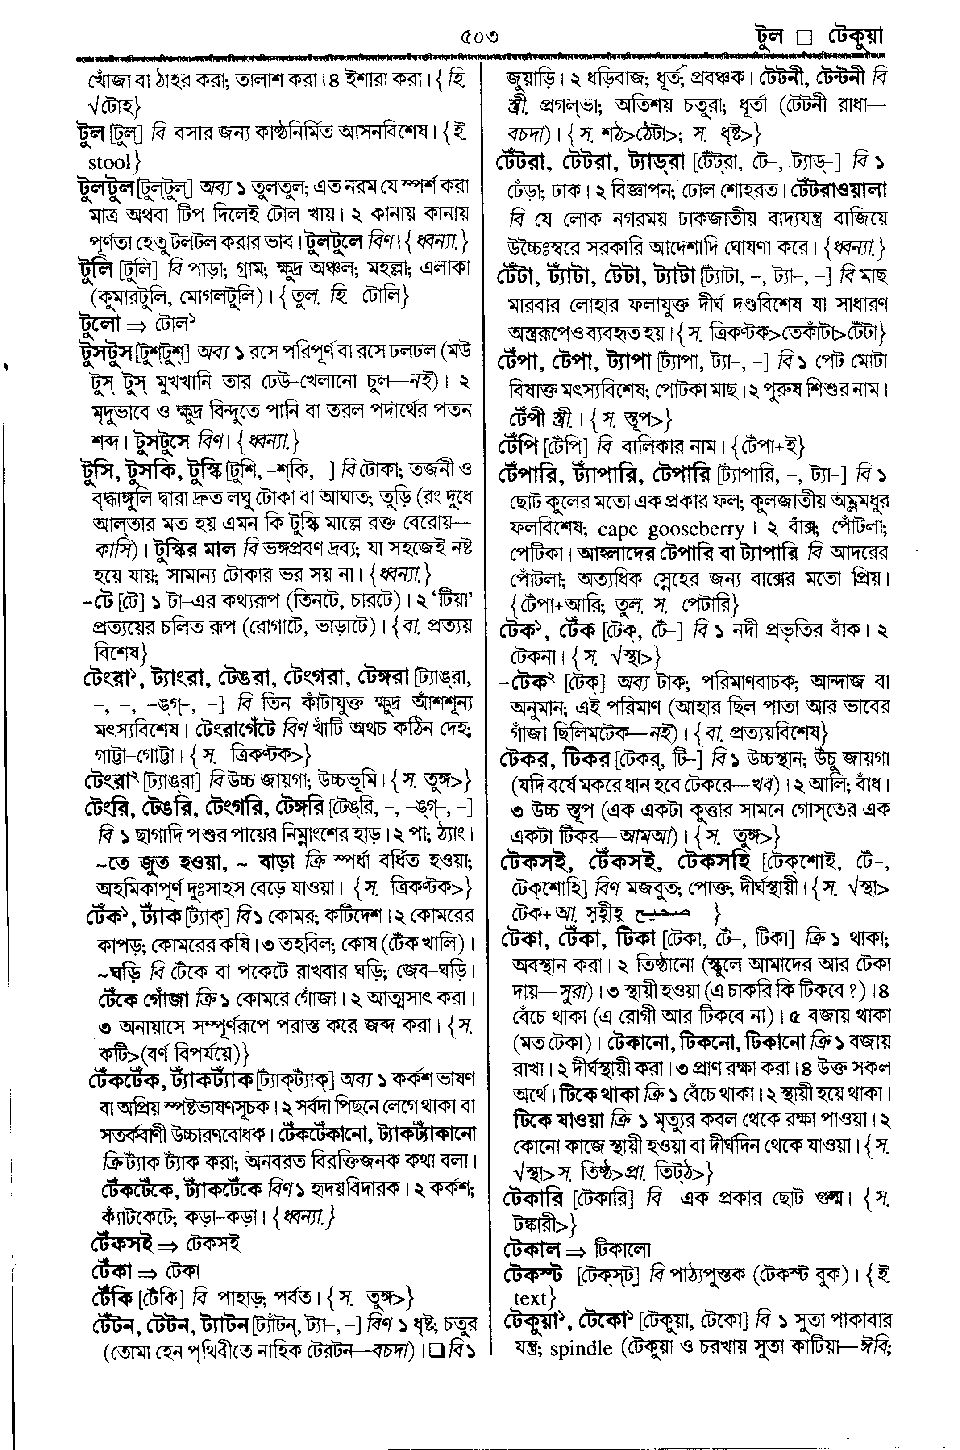 ৫০৩
টুল □ টেকুয়া
খোঁজা বা ঠাহর করা; তালাশ করা। ৪ ইশারা করা। {হি.
√টোহ্}
টুল [টুল্] বি বসার জন্য কাষ্ঠনির্মিত আসনবিশেষ। {ই.
stool}
টুলটুল [টুল্‌টুল্] অব্য ১ তুলতুল; এত নরম যে স্পর্শ করা
মাত্র অথবা টিপ দিলেই টোল খায়। ২ কানায় কানায়
পূর্ণতা হেতু টলটল করার ভাব। টুলটুলে বিণ। {ধ্বন্যা.}
টুলি [টুলি] বি পাড়া; গ্রাম; ক্ষুদ্র অঞ্চল; মহল্লা; এলাকা
(কুমারটুলি, মোগলটুলি)। {তুল. হি. টোলি}
টুলো ⇒ টোল১
টুসটুস [টুশ্‌টুশ্] অব্য ১ রসে পরিপূর্ণ বা রসে ঢলঢল (মউ
টুস্ টুস্ মুখখানি তার ঢেউ-খেলানো চুল—নই)। ২
মৃদুভাবে ও ক্ষুদ্র বিন্দুতে পানি বা তরল পদার্থের পতন
শব্দ। টুসটুসে বিণ। {ধ্বন্যা.}
টুসি, টুসকি, টুস্কি [টুশি, –শ্‌কি, ] বি টোকা; তর্জনী ও
বৃদ্ধাঙ্গুলি দ্বারা দ্রুত লঘু টোকা বা আঘাত; তুড়ি (রং দুধে
আল্‌তার মত হয় এমন কি টুস্কি মাল্লে রক্ত বেরোয়—
কাসি)। টুস্কির মাল বি ভঙ্গপ্রবণ দ্রব্য; যা সহজেই নষ্ট
হয়ে যায়; সামান্য টোকার ভর সয় না। {ধ্বন্যা.}
-টে [টে] ১ টা–এর কথ্যরূপ (তিনটে, চারটে)। ২ ‘টিয়া’
প্রত্যয়ের চলিত রূপ (রোগাটে, ভাড়াটে)। {বা. প্রত্যয়
বিশেষ}
টেংরা১, ট্যাংরা, টেঙরা, টেংগরা, টেঙ্গরা [ট্যাঙ্‌রা,
–, –, –ঙ্‌গ্–, –] বি তিন কাঁটাযুক্ত ক্ষুদ্র আঁশশূন্য
মৎস্যবিশেষ। টেংরাগেঁটে বিণ খাঁটি অথচ কঠিন দেহ;
গাট্টা–গোট্টা। {স. ত্রিকণ্টক>}
টেংরা২ [ট্যাঙ্‌রা] বি উচ্চ জায়গা; উচ্চভূমি। {স. তুঙ্গ>}
টেংরি, টেঙরি, টেংগরি, টেঙ্গরি [টেঙ্‌রি, –, –ঙ্‌গ্–, –]
বি ১ ছাগাদি পশুর পায়ের নিম্নাংশের হাড়। ২ পা; ঠ্যাং।
~তে জুত হওয়া, ~ বাড়া ক্রি স্পর্ধা বর্ধিত হওয়া;
অহমিকাপূর্ণ দুঃসাহস বেড়ে যাওয়া। {স. ত্রিকণ্টক>}
টেঁক১, ট্যাঁক [ট্যাঁক্] বি ১ কোমর; কটিদেশ। ২ কোমরের
কাপড়; কোমরের কষি। ৩ তহবিল; কোষ (টেঁক খালি)।
~ঘড়ি বি টেঁকে বা পকেটে রাখবার ঘড়ি; জেব–ঘড়ি।
টেঁকে গোঁজা ক্রি ১ কোমরে গোঁজা। ২ আত্মসাৎ করা।
৩ অনায়াসে সম্পূর্ণরূপে পরাস্ত করে জব্দ করা। {স.
কটি>(বর্ণ বিপর্যয়ে)}
টেঁকটেঁক, ট্যাঁকট্যাঁক [ট্যাঁক্‌ট্যাঁক্] অব্য ১ কর্কশ ভাষণ
বা অপ্রিয় স্পষ্টভাষণসূচক। ২ সর্বদা পিছনে লেগে থাকা বা
সতর্কবাণী উচ্চারণবোধক। টেঁকটেঁকানো, ট্যাঁকট্যাঁকানো
ক্রি ট্যাঁক ট্যাঁক করা; অনবরত বিরক্তিজনক কথা বলা।
টেঁকটেঁকে, ট্যাঁকটেঁকে বিণ ১ হৃদয়বিদারক। ২ কর্কশ;
ক্যাঁটকেটে; কড়া–কড়া। {ধ্বন্যা.}
টেঁকসই ⇒ টেকসই
টেঁকা ⇒ টেকা
টেঁকি [টেঁকি] বি পাহাড়; পর্বত। {স. তুঙ্গ>}
টেঁটন, টেটন, ট্যাটন [ট্যাঁটন্, ট্যা–, –] বিণ ১ ধৃষ্ট; চতুর
(তোমা হেন পৃথিবীতে নাহিক টেরটন—বচদা)। □ বি ১
জুয়াড়ি। ২ ধড়িবাজ; ধূর্ত; প্রবঞ্চক। টেটনী, টেন্টনী বি
স্ত্রী. প্রগল্‌ভা; অতিশয় চতুরা; ধূর্তা (টেটনী রাধা—
বচদা)। {স. শঠ>ঠেটা>; স. ধৃষ্ট>}
টেঁটরা, টেটরা, ট্যাড্‌রা [টেঁট্‌রা, টে–, ট্যাড্–] বি ১
ঢেঁড়া; ঢাক। ২ বিজ্ঞাপন; ঢোল শোহরত। টেঁটরাওয়ালা
বি যে লোক নগরময় ঢাকজাতীয় বাদ্যযন্ত্র বাজিয়ে
উচ্চৈঃস্বরে সরকারি আদেশাদি ঘোষণা করে। {ধ্বন্যা.}
টেঁটা, ট্যাঁটা, টেটা, ট্যাটা [ট্যাঁটা, –, ট্যা–, –] বি মাছ
মারবার লোহার ফলাযুক্ত দীর্ঘ দণ্ডবিশেষ যা সাধারণ
অস্ত্ররূপেও ব্যবহৃত হয়। {স. ত্রিকণ্টক>তেকাঁটা>টেঁটা}
টেঁপা, টেপা, ট্যাপা [ট্যাঁপা, ট্যা–, –] বি ১ পেট মোটা
বিষাক্ত মৎস্যবিশেষ; পোটকা মাছ। ২ পুরুষ শিশুর নাম।
টেঁপী স্ত্রী.। {স. স্তূপ>}
টেঁপি [টেঁপি] বি বালিকার নাম। {টেঁপা+ই}
টেঁপারি, ট্যাঁপারি, টেপারি [ট্যাঁপারি, –, ট্যা–] বি ১
ছোট কুলের মতো এক প্রকার ফল; কুলজাতীয় অম্লমধুর
ফলবিশেষ; cape gooseberry। ২ বাঁক্স; পোঁটলা;
পেটিকা। আহ্লাদের টেপারি বা ট্যাপারি বি আদরের
পোঁটলা; অত্যধিক স্নেহের জন্য বাক্সের মতো প্রিয়।
{টেঁপা+আরি; তুল. স. পেটারি}
টেক১, টেঁক [টেক্, টেঁ–] বি ১ নদী প্রভৃতির বাঁক। ২
টেকনা। {স. √স্থা>}
-টেক২ [টেক্] অব্য টাক; পরিমাণবাচক; আন্দাজ বা
অনুমান; এই পরিমাণ (আহার ছিল পাতা আর ভাবের
গাঁজা ছিলিমটেক—নই)। {বা. প্রত্যয়বিশেষ}
টেকর, টিকর [টেকর্, টি–] বি ১ উচ্চস্থান; উঁচু জায়গা
(যদি বর্ষে মকরে ধান হবে টেকরে—খব)। ২ আলি; বাঁধ।
৩ উচ্চ স্তূপ (এক একটা কুত্তার সামনে গোস্‌তের এক
একটা টিকর—আমআ)। {স. তুঙ্গ>}
টেকসই, টেঁকসই, টেকসহি [টেক্‌শোই, টেঁ–,
টেক্‌শোহি] বিণ মজবুত; পোক্ত; দীর্ঘস্থায়ী। {স. √স্থা>
টেক+ আ. স়হ়ীহ় صحيح }
টেকা, টেঁকা, টিকা [টেকা, টেঁ–, টিকা] ক্রি ১ থাকা;
অবস্থান করা। ২ তিষ্ঠানো (স্কুলে আমাদের আর টেকা
দায়—সুরা)। ৩ স্থায়ী হওয়া (এ চাকরি কি টিকবে?)। ৪
বেঁচে থাকা (এ রোগী আর টিকবে না)। ৫ বজায় থাকা
(মত টেকা)। টেকানো, টিকনো, টিকানো ক্রি ১ বজায়
রাখা। ২ দীর্ঘস্থায়ী করা। ৩ প্রাণ রক্ষা করা। ৪ উক্ত সকল
অর্থে। টিকে থাকা ক্রি ১ বেঁচে থাকা। ২ স্থায়ী হয়ে থাকা।
টিকে যাওয়া ক্রি ১ মৃত্যুর কবল থেকে রক্ষা পাওয়া। ২
কোনো কাজে স্থায়ী হওয়া বা দীর্ঘদিন থেকে যাওয়া। {স.
√স্থা>স. তিষ্ঠ>প্রা. তিট্‌ঠ>}
টেকারি [টেকারি] বি এক প্রকার ছোট গুল্ম। {স.
টঙ্কারী>}
টেকাল ⇒ টিকালো
টেকস্ট [টেক্‌স্ট্] বি পাঠ্যপুস্তক (টেকস্ট বুক)। {ই.
text}
টেকুয়া১, টেকো১ [টেকুয়া, টেকো] বি ১ সুতা পাকাবার
যন্ত্র; spindle (টেকুয়া ও চরখায় সুতা কাটিয়া—ঈবি;